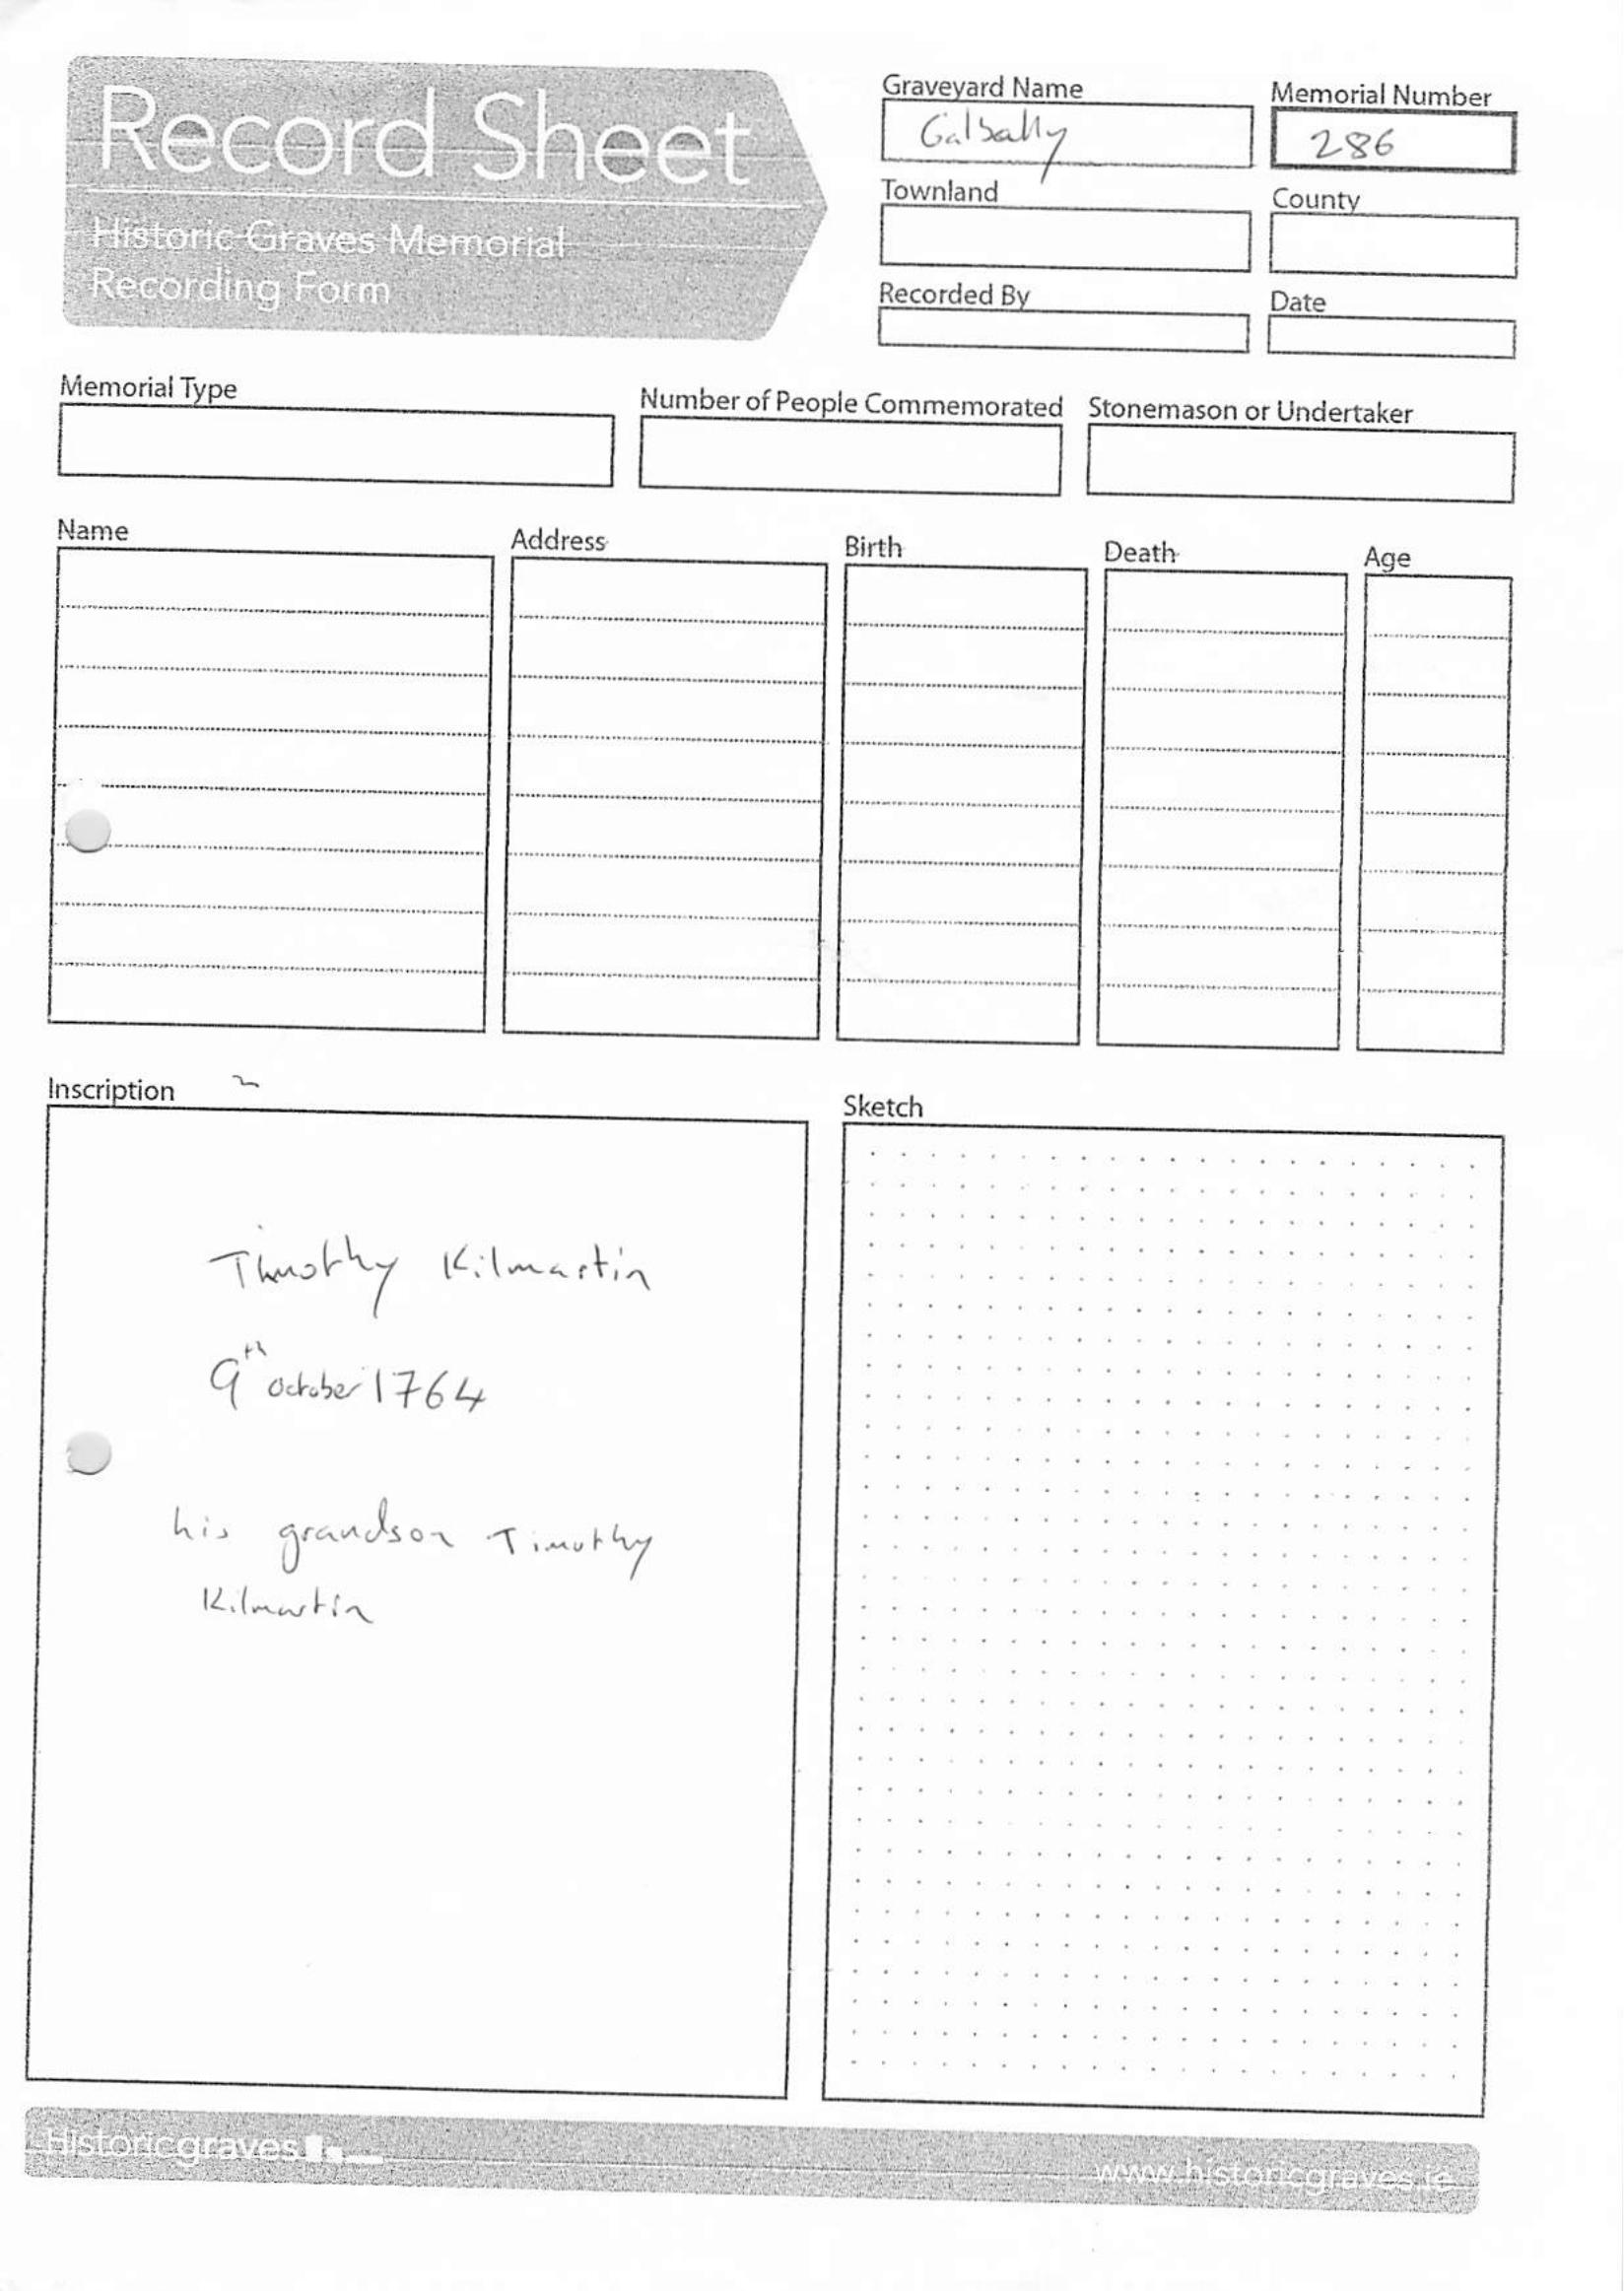 Record Sheet
Historic Graves Memorial
Recording Form
Graveyard Name
Galbally
Memorial Number
286
Townland
County
Recorded By
Date
Memorial Type
Number of People Commemorated
Stonemason or Undertaker
Name
Address
Birth
Death
Age
Inscription
Timothy Kilmartin
9th October 1764
his grandson Timothy
Kilmartin
Sketch
Historicgraves
www.historicgraves.ie